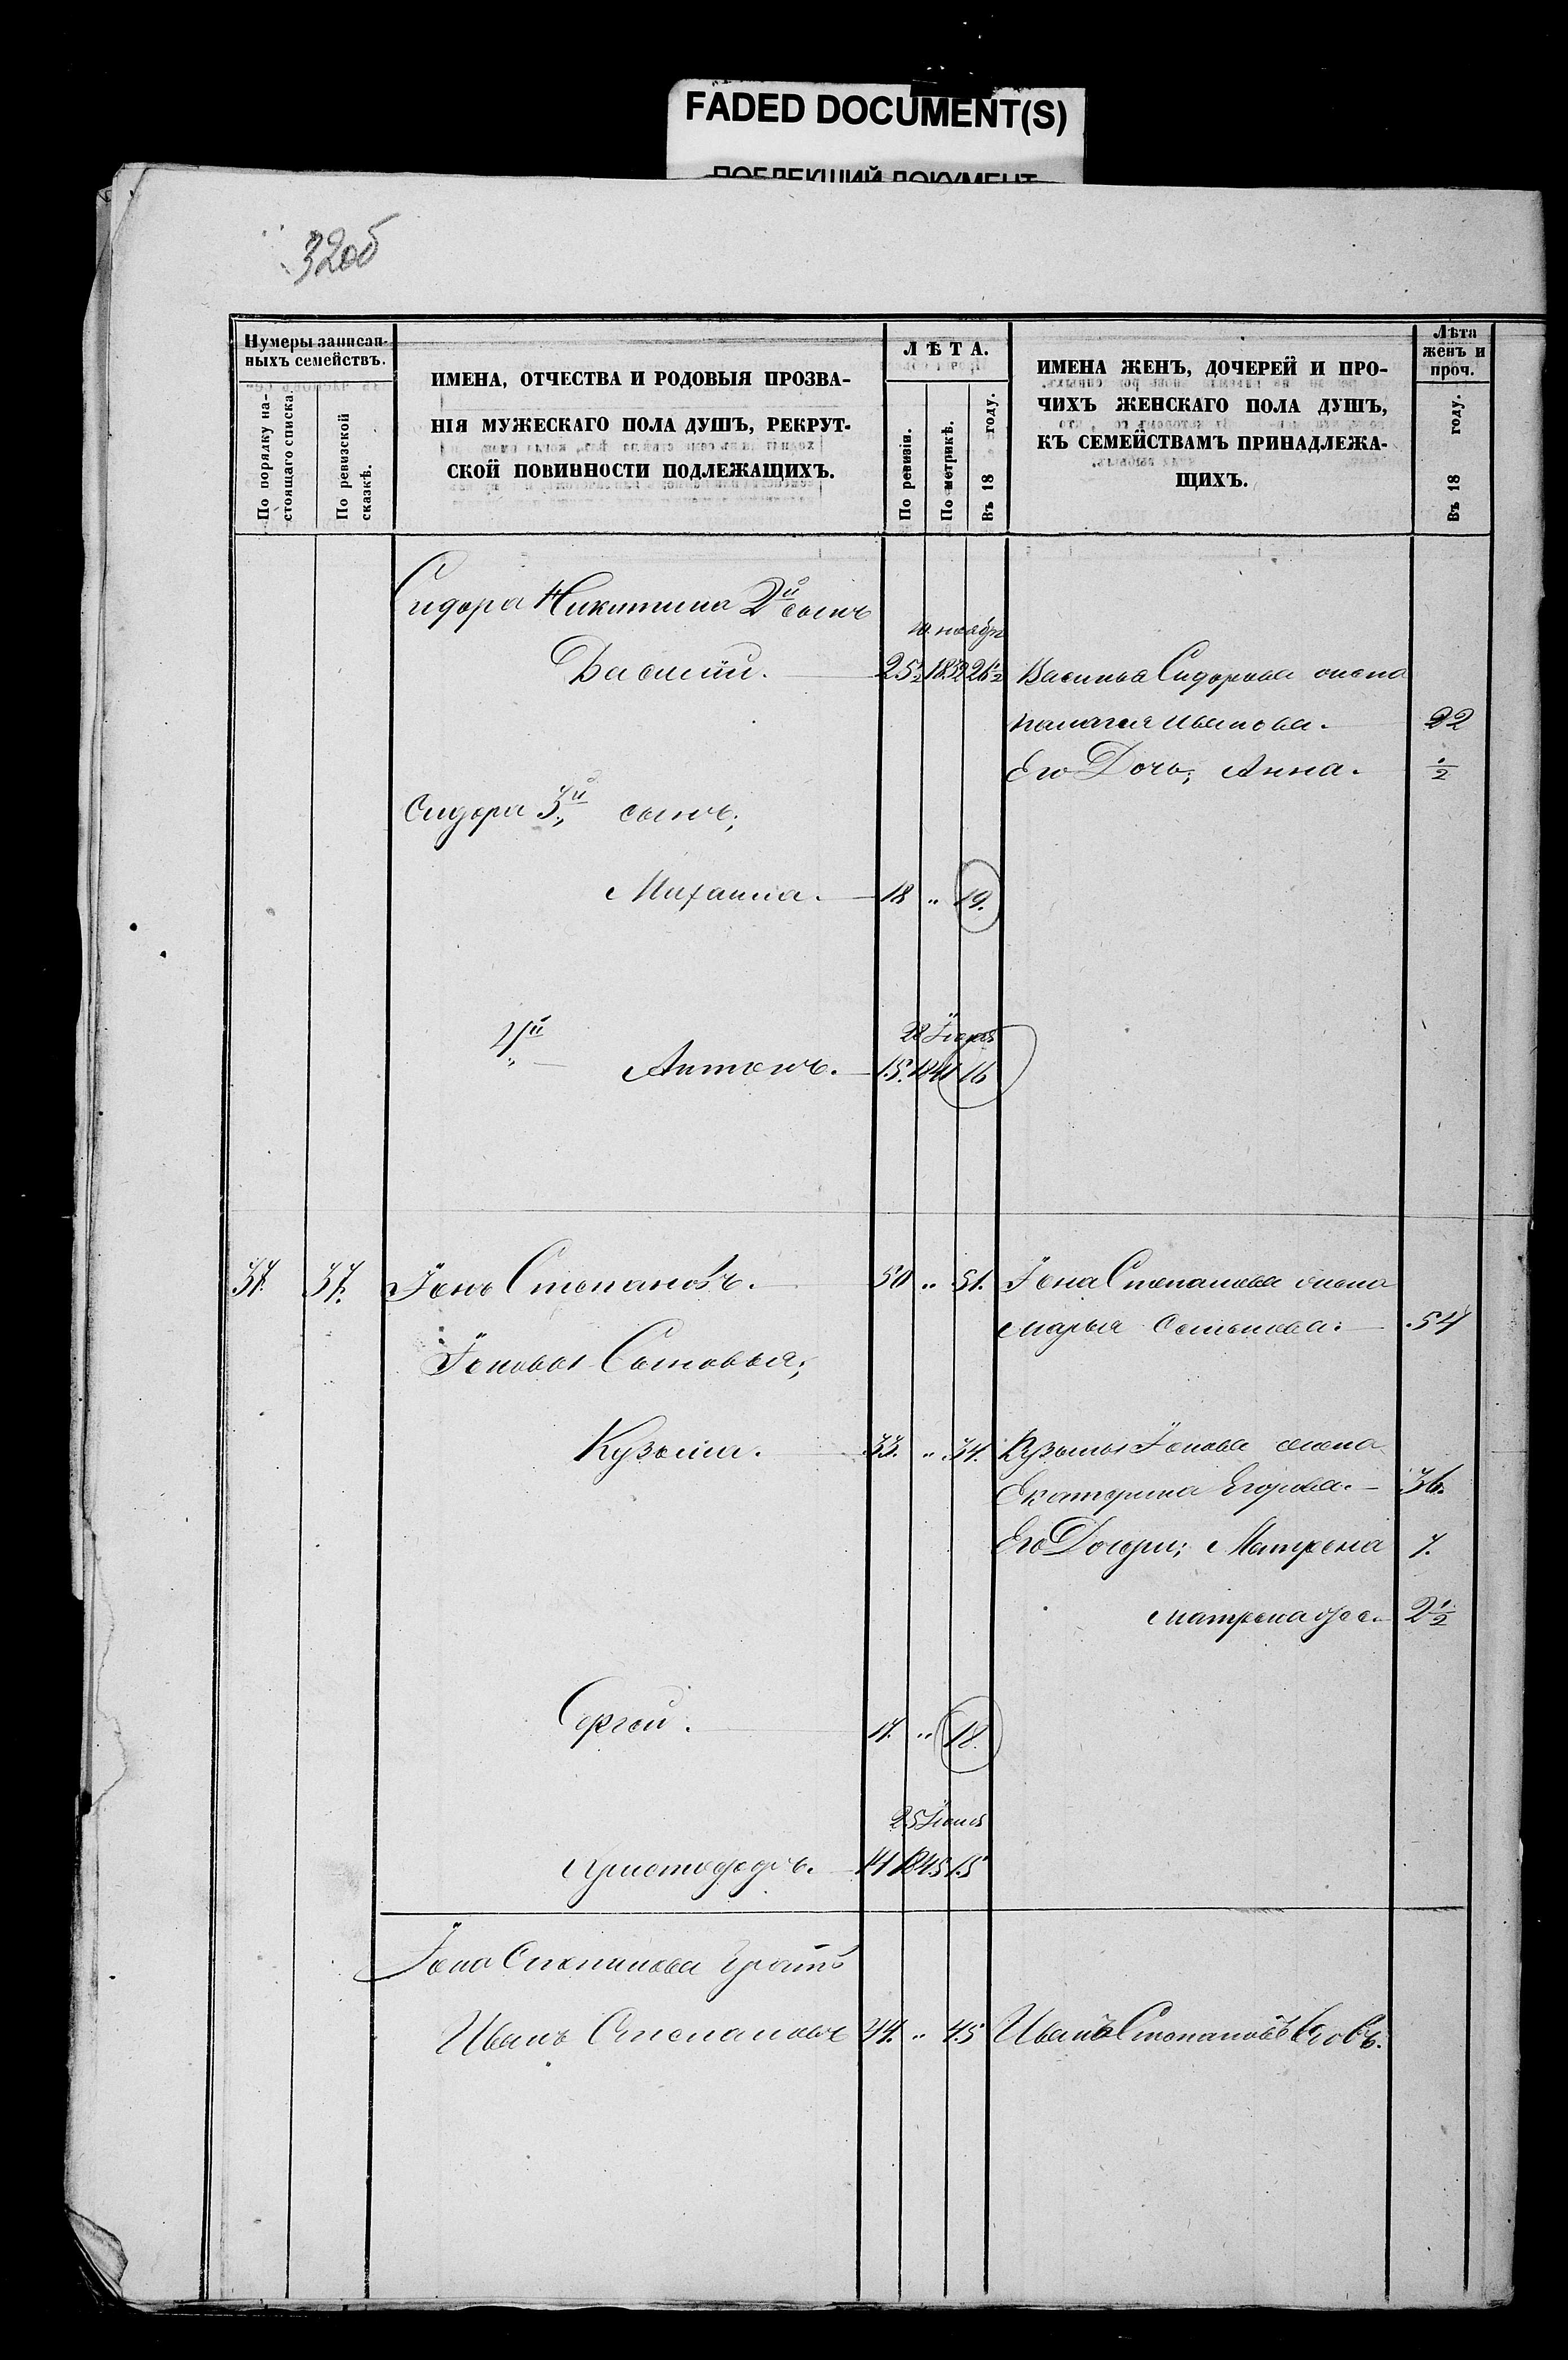 FADED DOCUMENT(S)
ПОБЛЕКШИЙ ДОКУМЕНТ
32об
Нумеры записан-
ныхъ семействъ.
По порядку на-
стоящаго списка.
По ревизской
сказкѣ.
ИМЕНА, ОТЧЕСТВА И РОДОВЫЯ ПРОЗВА-
НІЯ МУЖЕСКАГО ПОЛА ДУШЪ, РЕКРУТ-
СКОЙ ПОВИННОСТИ ПОДЛЕЖАЩИХЪ.
ЛѢТА.
По ревизіи.
По метрикѣ.
Въ 18 году.
ИМЕНА ЖЕНЪ, ДОЧЕРЕЙ И ПРО-
ЧИХЪ ЖЕНСКАГО ПОЛА ДУШЪ,
КЪ СЕМЕЙСТВАМЪ ПРИНАДЛЕЖА-
ЩИХЪ.
Лѣта
женъ и
проч.
Въ 18 году.
Сидора Никитина 2й сынъ
10 ноябр
Василій. 25½ 1832 26½ Василья Сидорова жена
Палагея Иванова. 22
Его Дочь; Анна. ½
Сидора 3й сынъ;
Михаила. 18 " 19.
4й
28 Іюля
Антонъ. 15. 1841 16
37. 37. Іонъ Степановъ. 50 " 51. Іона Степанова жена
Марья Осипова. 54
Іоновы Сыновья;
Кузьма. 33. " 34. Кузьмы Іонова жена
Екатерина Егорова. 36.
Его Дочери; Матрена 7.
Матрена др. 2½
Сергей. 17. " 18.
25 Іюня
Христофоръ. 14 1843 15
Іона Степанова братъ
Иванъ Степановъ 44. " 45 Иванъ Степановъ вдовъ.